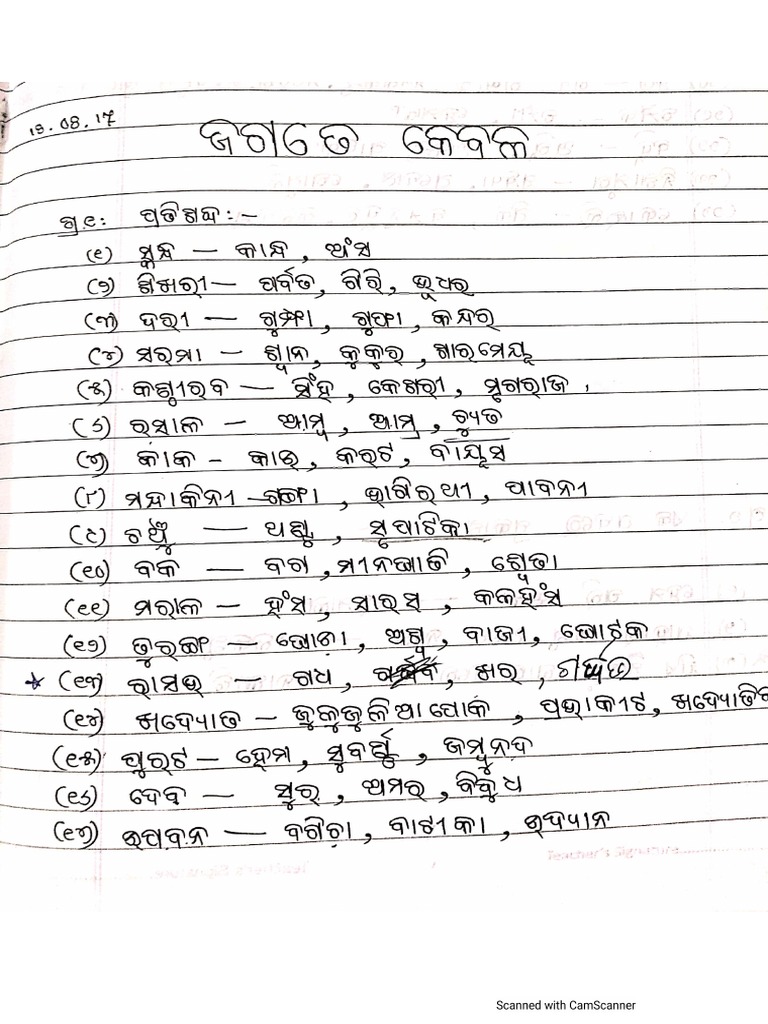 19.08.17
ଜଗତେ କେବଳ
ପ୍ର.୧: ପ୍ରତିଶବ୍ଦ:-
(୧) ସ୍କନ୍ଧ — କାନ୍ଧ, ଅଂସ
(୨) ଶିଖରୀ — ପର୍ବତ, ଗିରି, ଭୂଧର
(୩) ଦରୀ — ଗୁମ୍ଫା, ଗୁଫା, କନ୍ଦର
(୪) ସରମା — ଶ୍ୱାନ, କୁକୁର, ଶାରମେୟ
(୫) କଣ୍ଠୀରବ — ସିଂହ, କେଶରୀ, ମୃଗରାଜ
(୬) ରସାଳ — ଆମ୍ବ, ଆମ୍ର, ଚ୍ୟୁତ
(୭) କାକ - କାଉ, କରଟ, ବାୟସ
(୮) ମନ୍ଦାକିନୀ — ଗଙ୍ଗା, ଭାଗିରଥୀ, ପାବନୀ
(୯) ଚଞ୍ଚୁ — ଥଣ୍ଟ, ସୃପାଟିକା
(୧୦) ବକ — ବଗ, ମୀନଘାତି, ଶ୍ୱେତା
(୧୧) ମରାଳ — ହଂସ, ସାରସ, କଳହଂସ
(୧୨) ତୁରଙ୍ଗ — ଘୋଡ଼ା, ଅଶ୍ୱ, ବାଜୀ, ଘୋଟକ
(୧୩) ରାସଭ — ଗଧ, ଖର, ଗର୍ଦ୍ଦଭ
(୧୪) ଖଦ୍ୟୋତ — ଜୁଳୁଜୁଳିଆ ପୋକ, ପ୍ରଭାକୀଟ, ଖଦ୍ୟୋତିକ
(୧୫) ପୁରଟ — ହେମ, ସୁବର୍ଣ୍ଣ, ଜମ୍ବୁନଦ
(୧୬) ଦେବ — ସୁର, ଅମର, ବିବୁଧ
(୧୭) ଉପବନ — ବଗିଚା, ବାଟୀକା, ଉଦ୍ୟାନ
Teacher's Signature
Scanned with CamScanner